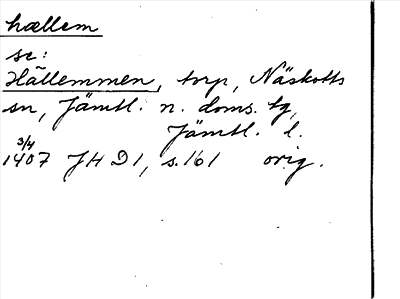 hællem
se:
Hällemmen, torp, Näskotts
sn, Jämtl. n. doms. tg,
Jämtl. l.
3/4
1407 JHD 1, s. 161 orig.